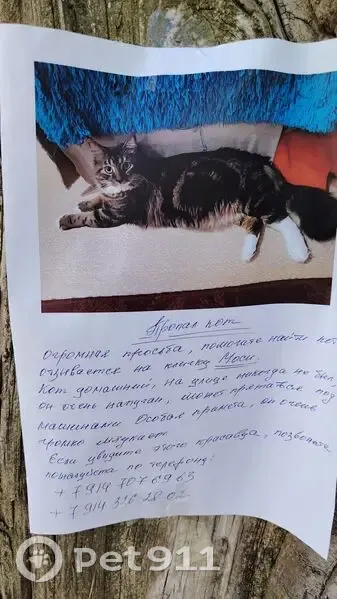 Пропал кот
огромная просьба, помогите найти кот
отзывается на кличку Моси.
Кот домашний, на улице никогда не был,
он очень напуган, может прятаться под
машинами. Особая примета, он очень
громко мяукает
Если увидите этого красавца, позвоните
пожалуйста по телефону:
+7 914 707 69 63
+7 914 326 28 02
Pet911